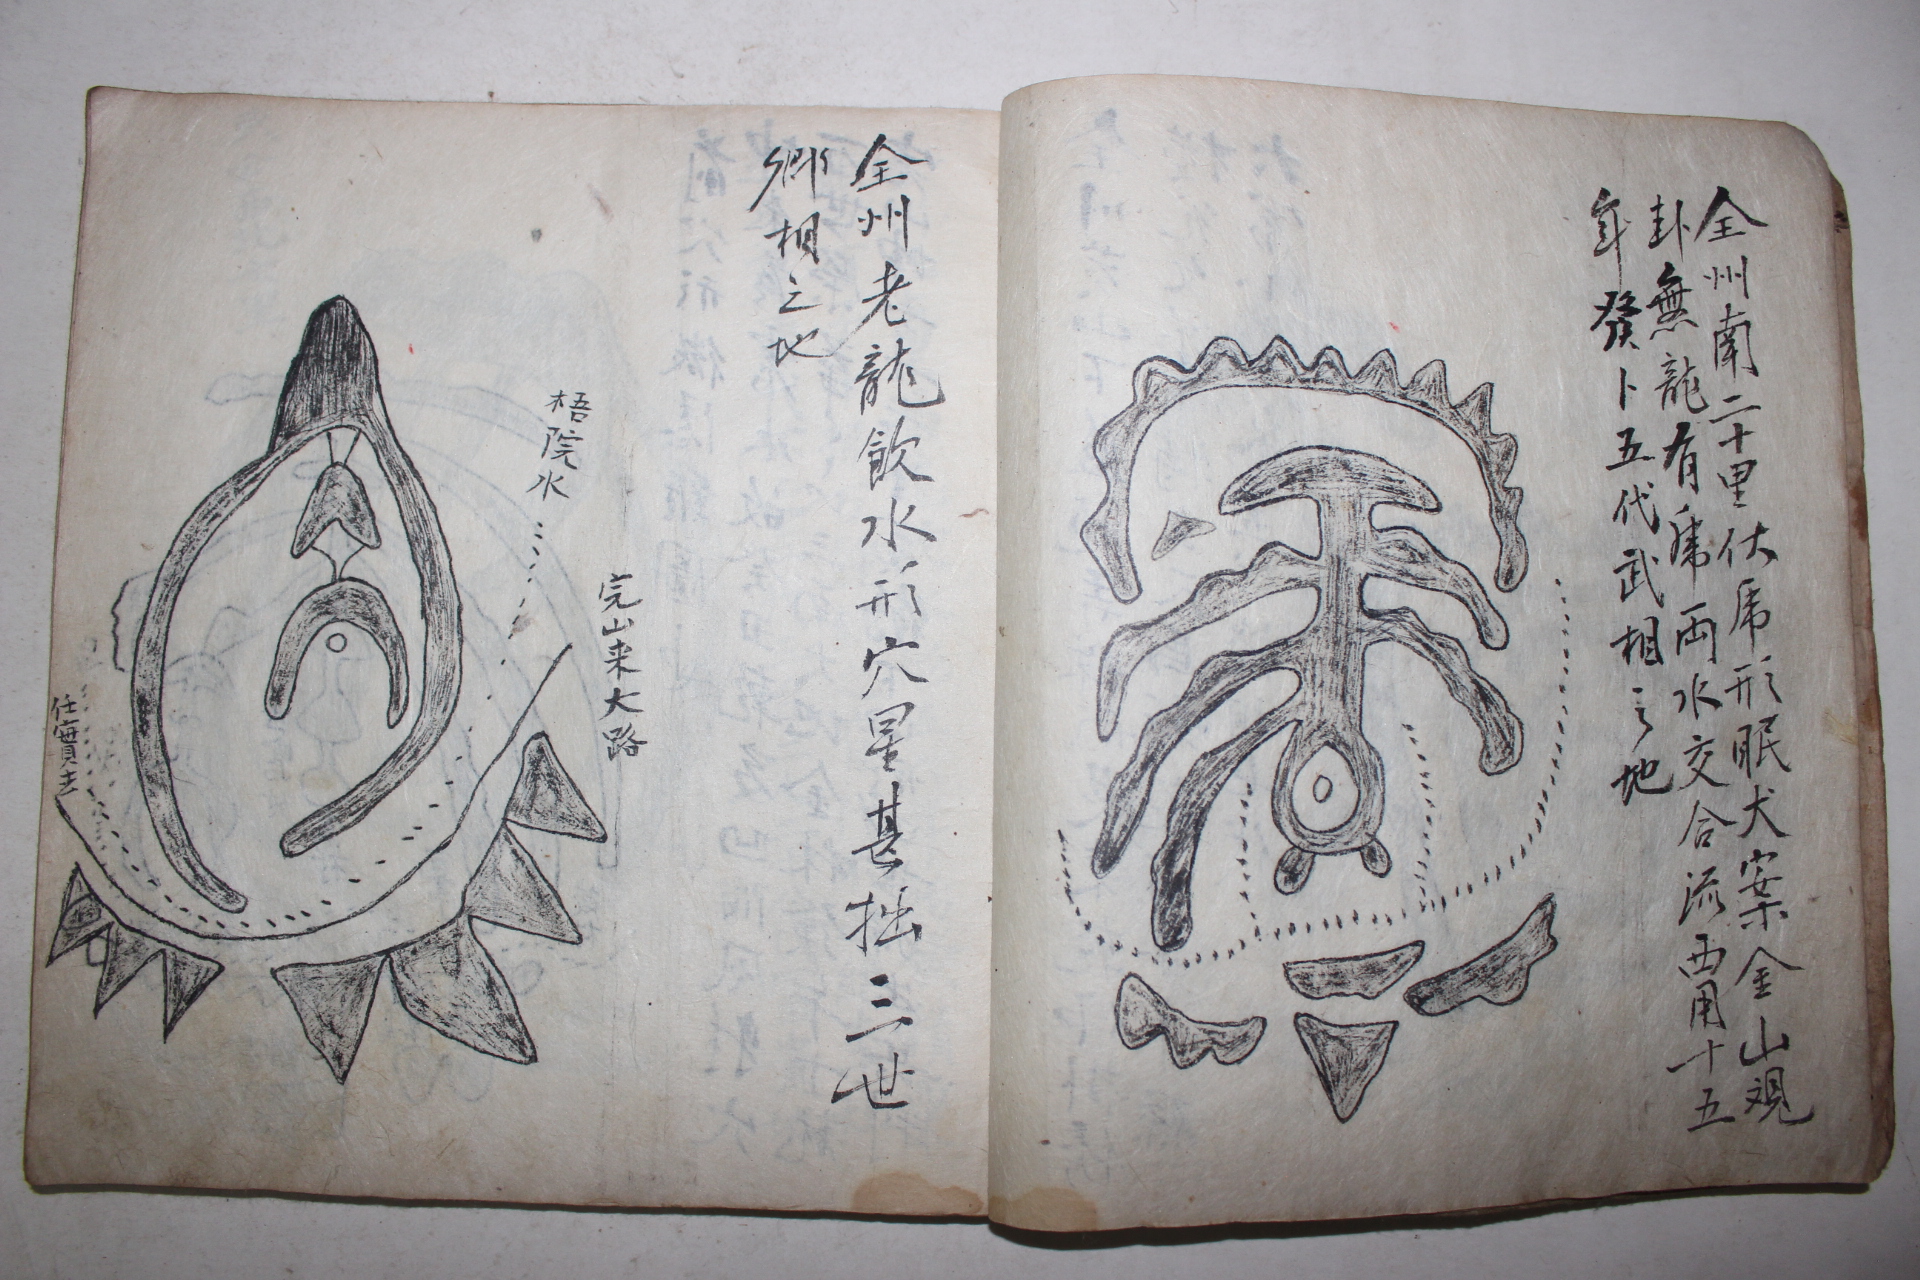 全州南二十里伏虎形眠犬案金山覌
卦無龍有虎両水交合流西用十五
年發卜五代武相之地
全州老龍飲水形穴星甚拙三世
卿相之地
梧院水
完山来大路
任實去